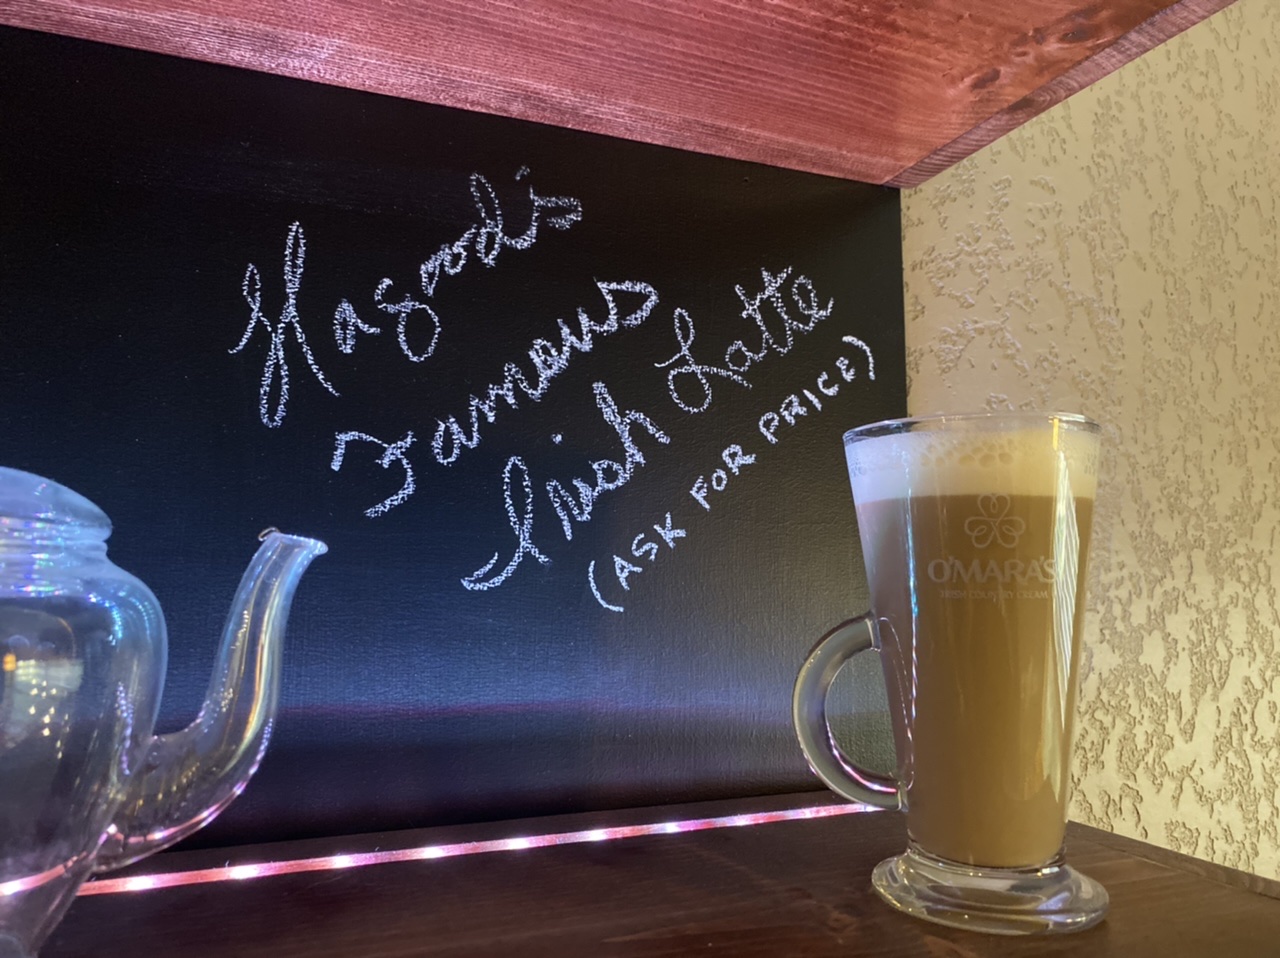 Hagood's
Famous
Irish Latte
(ASK FOR PRICE)
O'MARA'S
IRISH COUNTRY CREAM